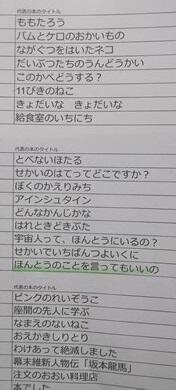 代表の本のタイトル
ももたろう
バムとケロのおかいもの
ながぐつをはいたネコ
だいぶつたちのうんどうかい
このかべどうする？
11ぴきのねこ
きょだいな　きょだいな
給食室のいちにち
代表の本のタイトル
とべないほたる
せかいのはてってどこですか？
ぼくのかえりみち
アインシュタイン
どんなかんじかな
はれときどきぶた
宇宙人って、ほんとうにいるの？
せかいでいちばんつよいくに
ほんとうのことを言ってもいいの
代表の本のタイトル
ピンクのれいぞうこ
座間の先人に学ぶ
なまえのないねこ
おえかきしりとり
わけあって絶滅しました
幕末維新人物伝「坂本龍馬」
注文のおおい料理店
本でした